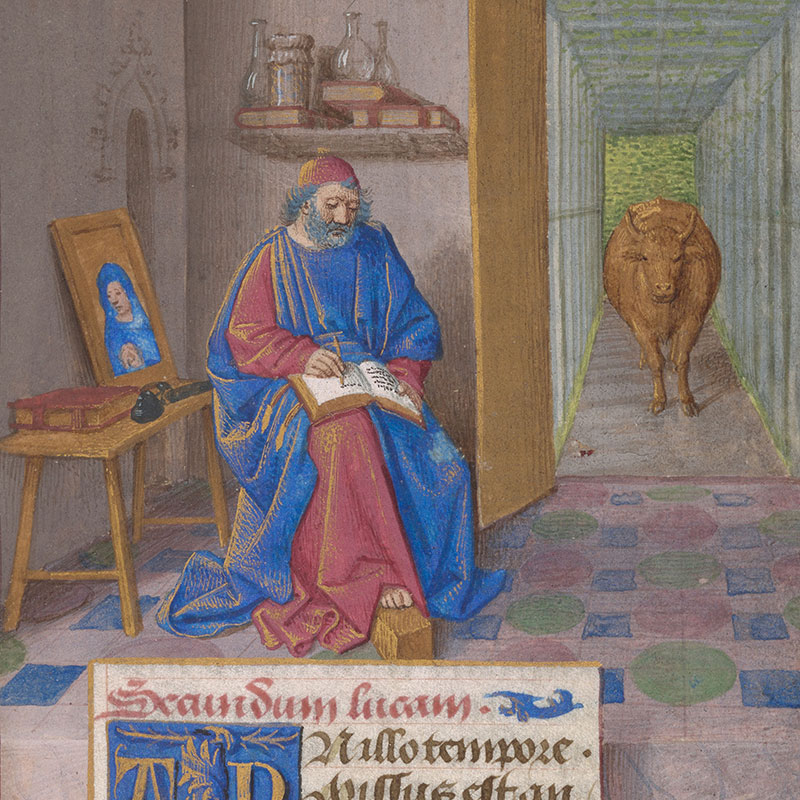 Secundum lucam.
N illo tempore.
Missus est an